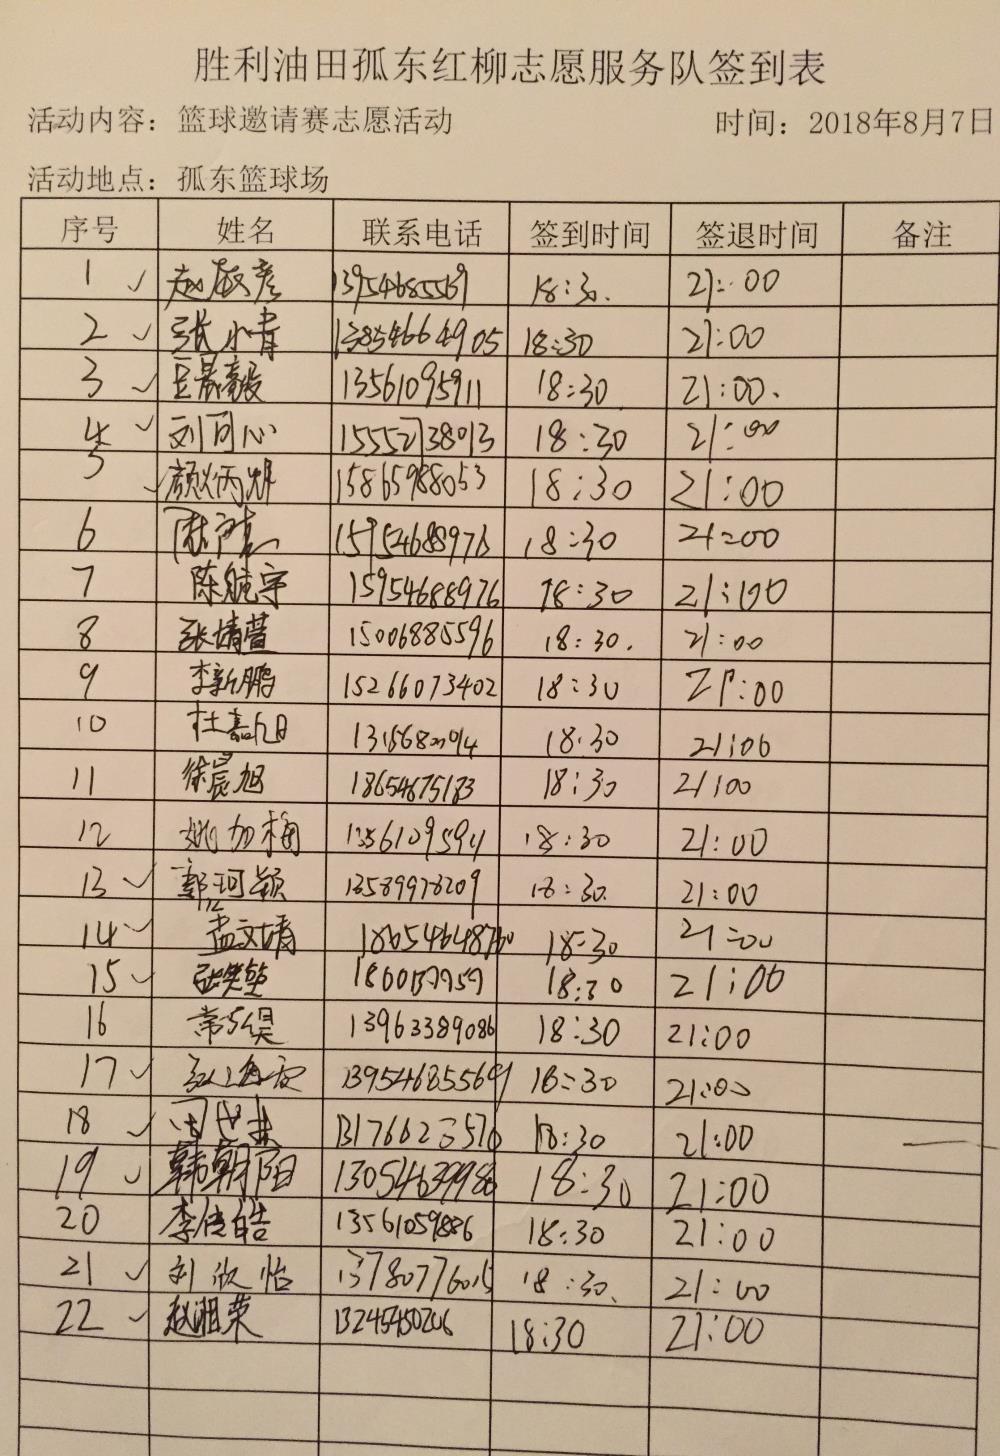 胜利油田孤东红柳志愿服务队签到表
活动内容：篮球邀请赛志愿活动 时间：2018年8月7日
活动地点：孤东篮球场
序号 姓名 联系电话 签到时间 签退时间 备注
1 ✓ 赵敬彦 13954685569 18:30. 21:00
2 ✓ 张小青 13854664905 18:30 21:00
3 ✓ 13561095911 18:30 21:00.
4 ✓ 刘同心 15552738013 18:30 21:00
5 ✓ 颜炳 15865988053 18:30 21:00
6 15954688976 18:30 21:00
7 陈航宇 15954688976 18:30 21:00
8 张靖萱 15006885596 18:30. 21:00
9 李新鹏 15266073402 18:30 21:00
10 杜嘉旭 18:30 21:00
11 徐晨旭 18654675183 18:30 21:00
12 姚加梅 13561095911 18:30 21:00
13 ✓ 郭珂颖 13589978209 18:30. 21:00
14 ✓ 孟文靖 18:30 21:00
15 ✓ 18:30 21:00
16 13963389086 18:30 21:00
17 ✓ 13954685569 18:30 21:00
18 ✓ 18:30 21:00
19 ✓ 韩朝阳 13054639986 18:30 21:00
20 李俊皓 13561059886 18:30 21:00
21 ✓ 刘欣怡 13780776015 18:30. 21:00
22 ✓ 赵湘荣 13245450206 18:30 21:00